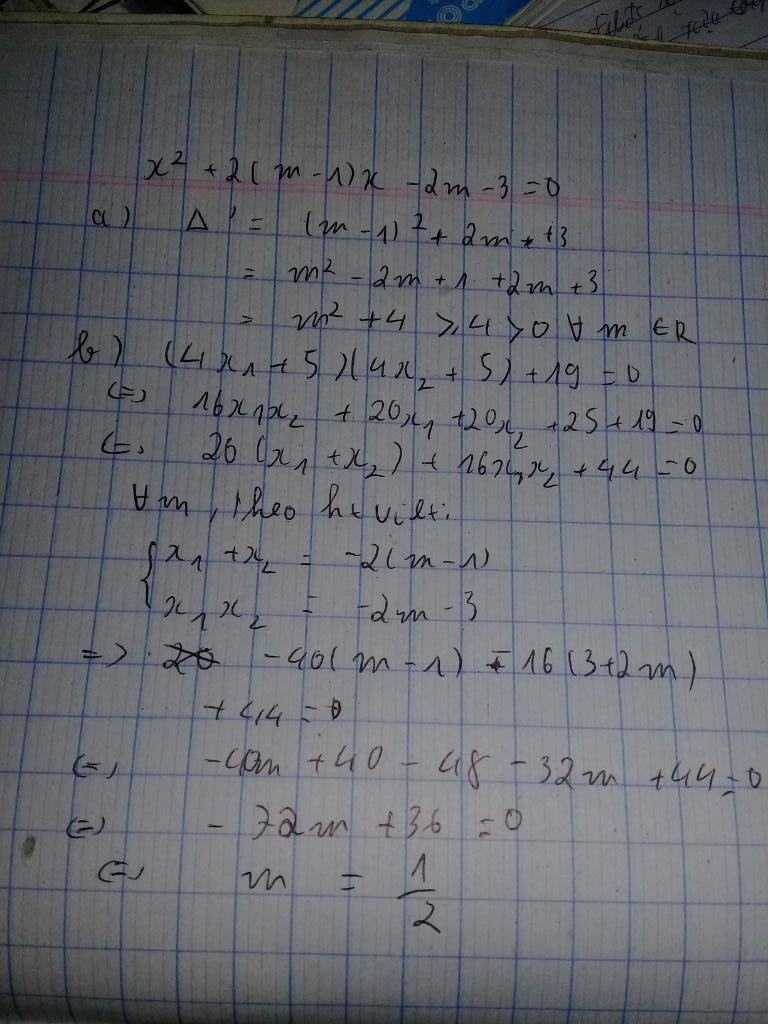 x² + 2(m - 1)x - 2m - 3 = 0
a) Δ' = (m - 1)² + 2m + +3
= m² - 2m + 1 + 2m + 3
= m² + 4 ≥ 4 > 0 ∀ m ∈ R
b) (4x₁ + 5)(4x₂ + 5) + 19 = 0
(=) 16x₁x₂ + 20x₁ + 20x₂ + 25 + 19 = 0
(=) 20(x₁ + x₂) + 16x₁x₂ + 44 = 0
∀m, theo ht viét:
{ x₁ + x₂ = -2(m - 1)
x₁x₂ = -2m - 3
=> -40(m - 1) - 16(3+2m)
+ 44 = 0
(=) -40m + 40 - 48 - 32m + 44 = 0
(=) - 72m + 36 = 0
(=) m = 1/2